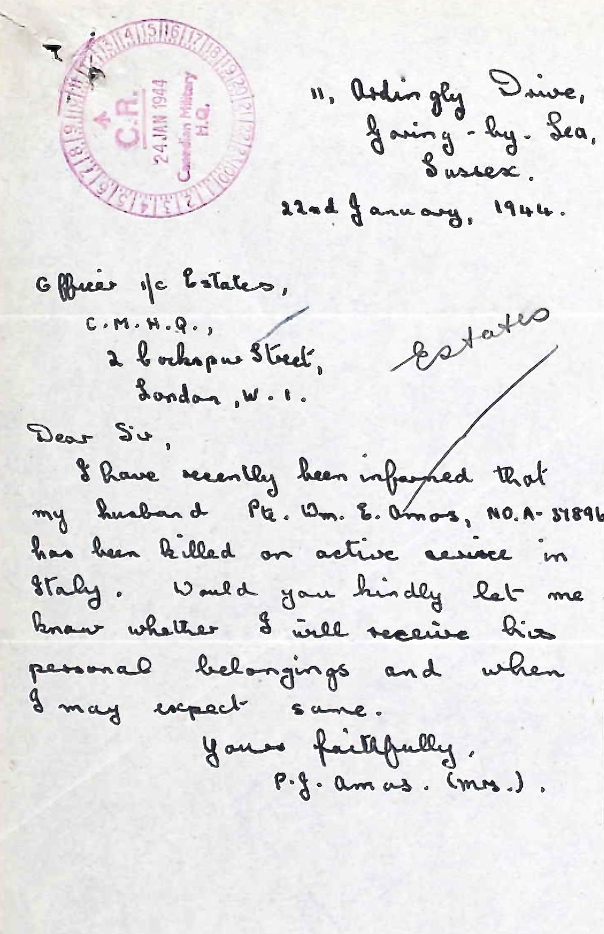 C.R.
24 JAN 1944
Canadian Military
H.Q.
11, Ardingly Drive,
Goring-by-Sea,
Sussex.
22nd January, 1944.
Officer i/c Estates,
C.M.H.Q.,
2 Cockspur Street,
London, W.1.
Estates
Dear Sir,
I have recently been informed that
my husband Pte. Wm. E. Amos, NO.A-37896
has been killed on active service in
Italy. Would you kindly let me
know whether I will receive his
personal belongings and when
I may expect same.
Yours faithfully,
P.J. Amos. (Mrs.).